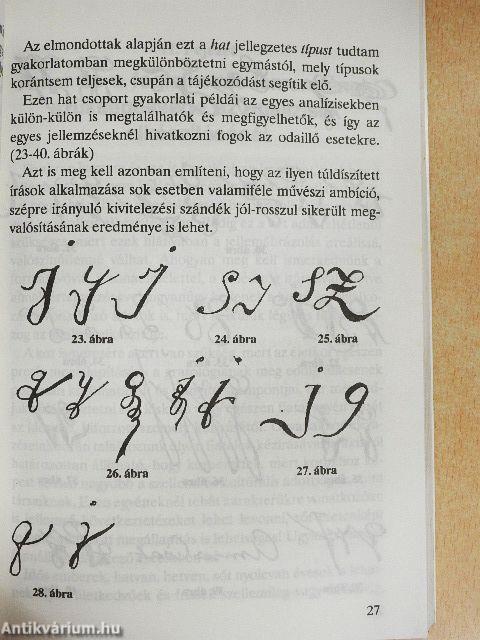 Az elmondottak alapján ezt a hat jellegzetes típust tudtam
gyakorlatomban megkülönböztetni egymástól, mely típusok
korántsem teljesek, csupán a tájékozódást segítik elő.
Ezen hat csoport gyakorlati példái az egyes analízisekben
külön-külön is megtalálhatók és megfigyelhetők, és így az
egyes jellemzéseknél hivatkozni fogok az odaillő esetekre.
(23-40. ábrák)
Azt is meg kell azonban említeni, hogy az ilyen túldíszített
írások alkalmazása sok esetben valamiféle művészi ambíció,
szépre irányuló kivitelezési szándék jól-rosszul sikerült meg-
valósításának eredménye is lehet.
23. ábra
24. ábra
25. ábra
26. ábra
27. ábra
28. ábra
27
Antikvárium.hu